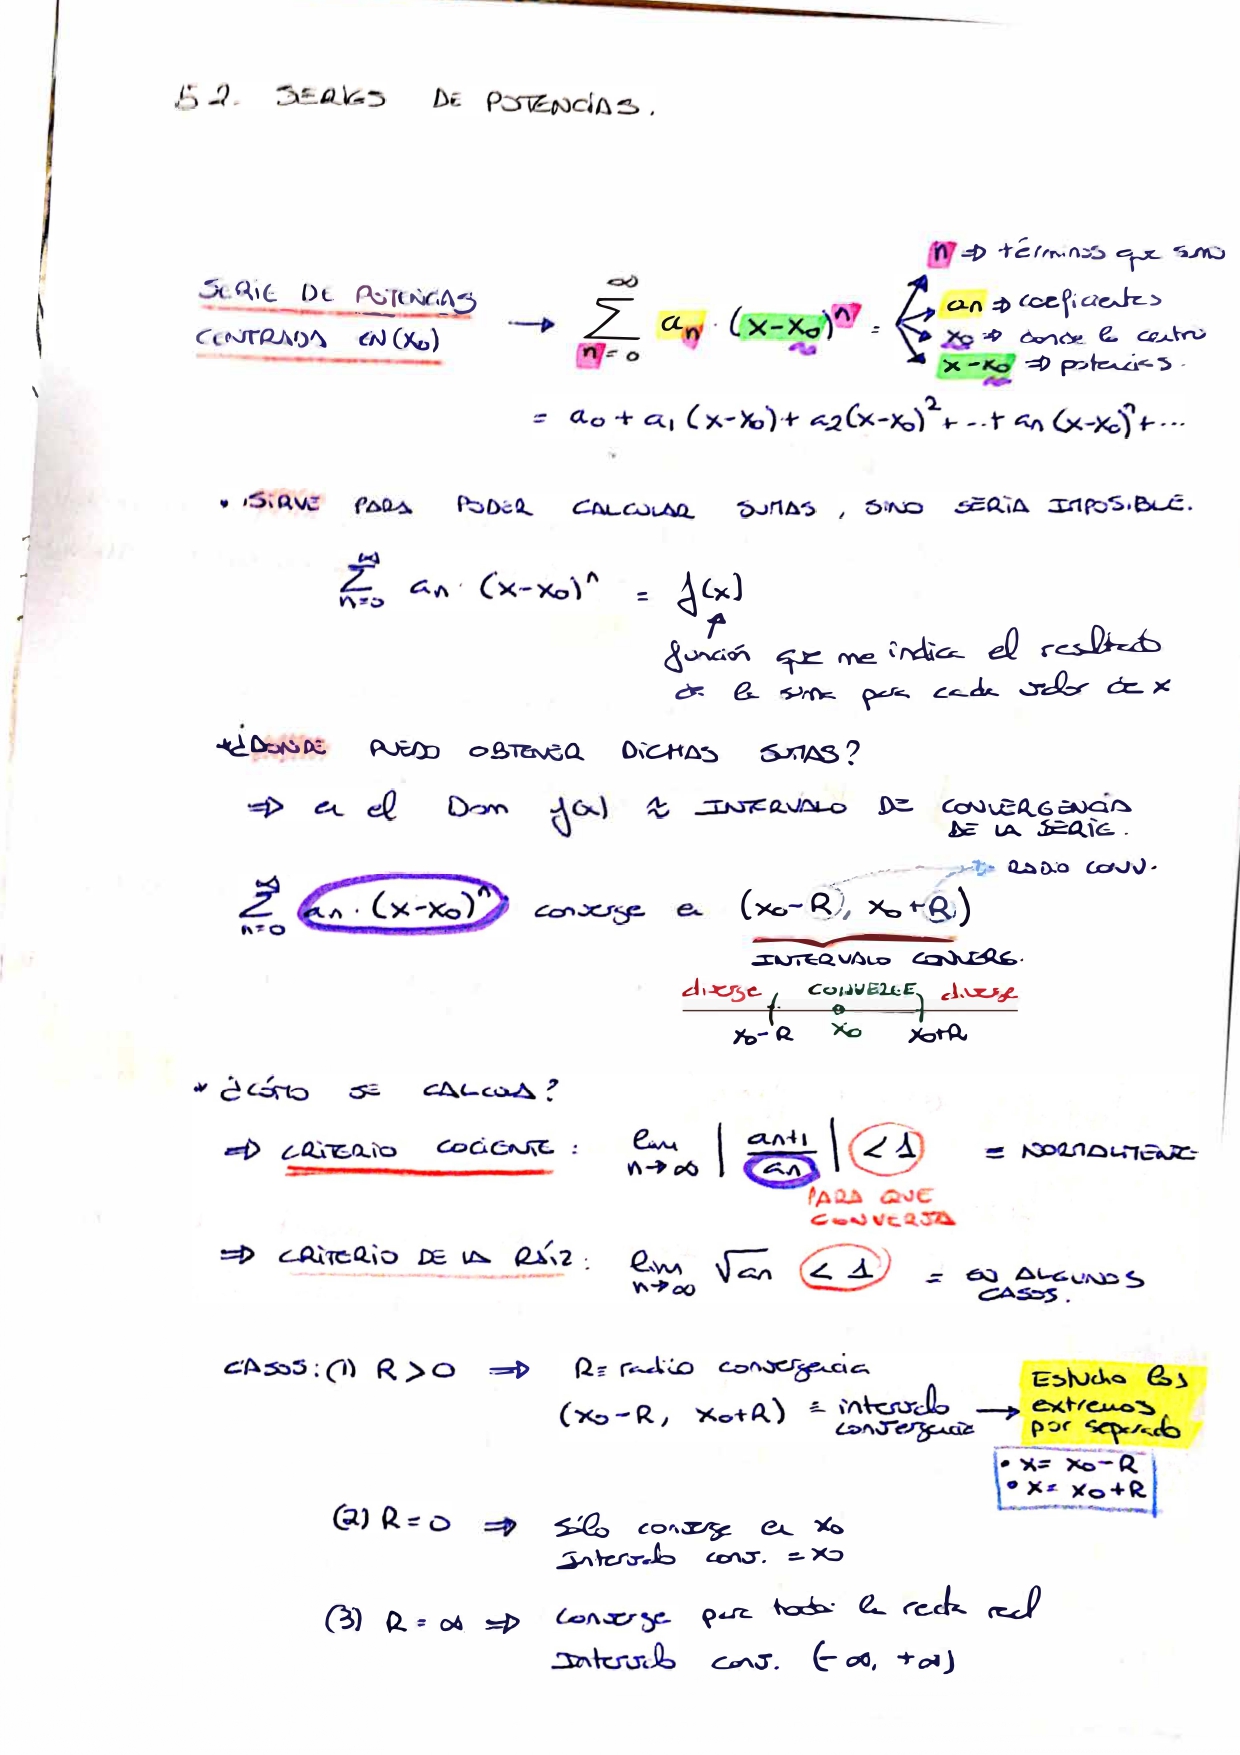 5 2. SERIES DE POTENCIAS.
n ⇒ términos que sumo
SERIE DE POTENCIAS
CENTRADA EN (x₀)
→ ∑_{n=0}^{∞} aₙ · (x-x₀)ⁿ =
an ⇒ coeficientes
x₀ ⇒ donde la centro
x-x₀ ⇒ potencias.
= a₀ + a₁ (x-x₀) + a₂(x-x₀)² + ..+ an (x-x₀)ⁿ + ...
• SIRVE PARA PODER CALCULAR SUMAS, SINO SERÍA IMPOSIBLE.
∑_{n=0}^{∞} an · (x-x₀)ⁿ = f(x)
↑
función que me indica el resultado
de la suma para cada valor de x
* ¿DONDE PUEDO OBTENER DICHAS SUMAS?
⇒ en el Dom f(x) ≈ INTERVALO DE CONVERGENCIA
DE LA SERIE.
→ RADIO CONV.
∑_{n=0}^{∞} an · (x-x₀)ⁿ converge en (x₀-R, x₀+R)
INTERVALO CONVERG.
diverge CONVERGE diverge
x₀-R x₀ x₀+R
* ¿CÓMO SE CALCULA?
⇒ CRITERIO COCIENTE : lim_{n→∞} | an+1 / an | < 1 = NORMALMENTE
PARA QUE
CONVERJA
⇒ CRITERIO DE LA RAÍZ : lim_{n→∞} √an < 1 = EN ALGUNOS
CASOS.
CASOS: (1) R > 0 ⇒ R ≡ radio convergencia
(x₀-R, x₀+R) ≡ intervalo
convergencia
→ Estudio los
extremos
por separado
• x = x₀-R
• x = x₀+R
(2) R = 0 ⇒ Sólo converge en x₀
Intervalo conv. = x₀
(3) R = ∞ ⇒ Converge para toda la recta real
Intervalo conv. (-∞, +∞)